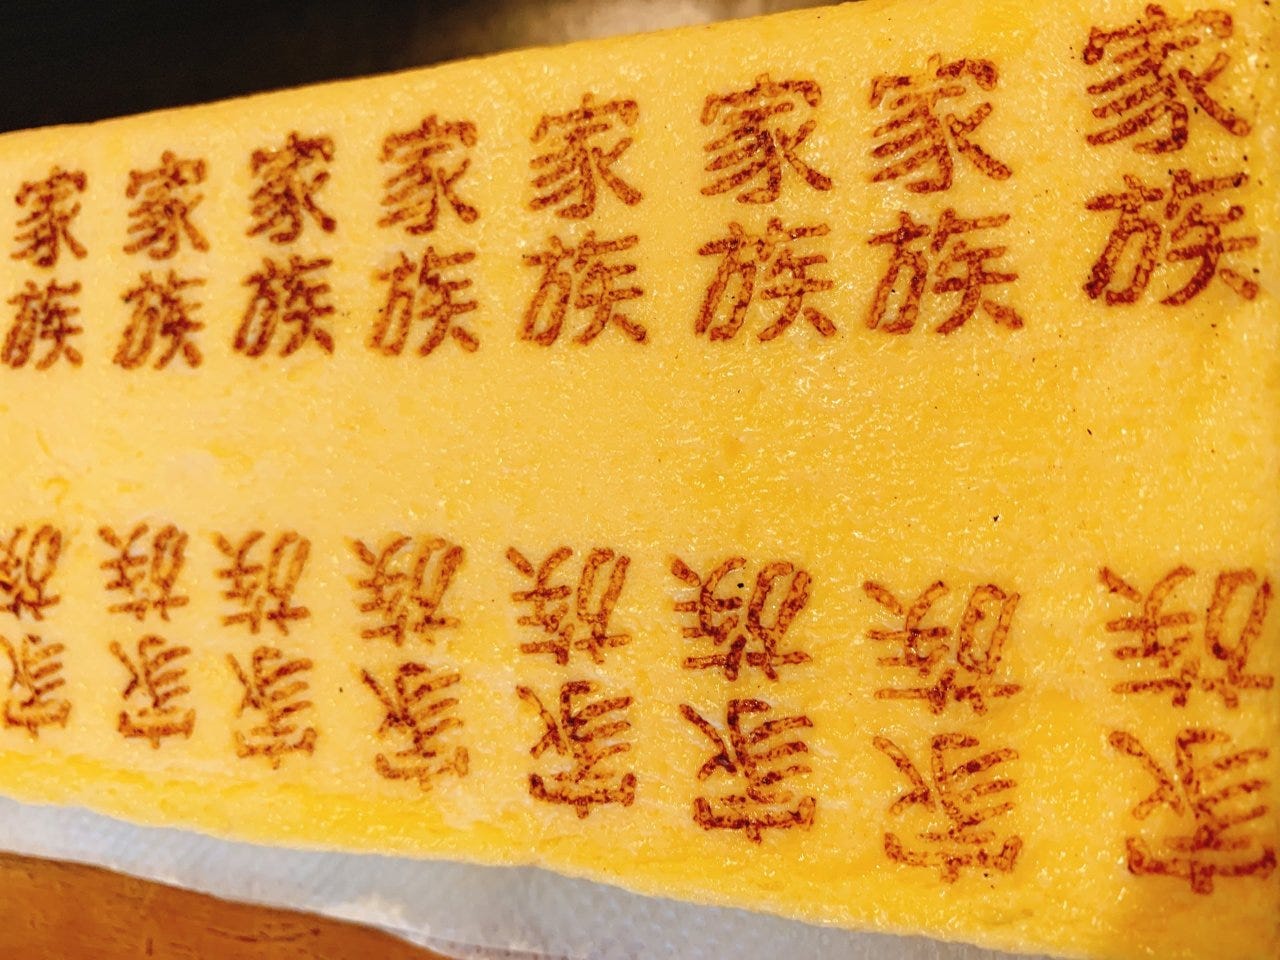 家族 家族 家族 家族 家族 家族 家族 家族
家族 家族 家族 家族 家族 家族 家族 家族